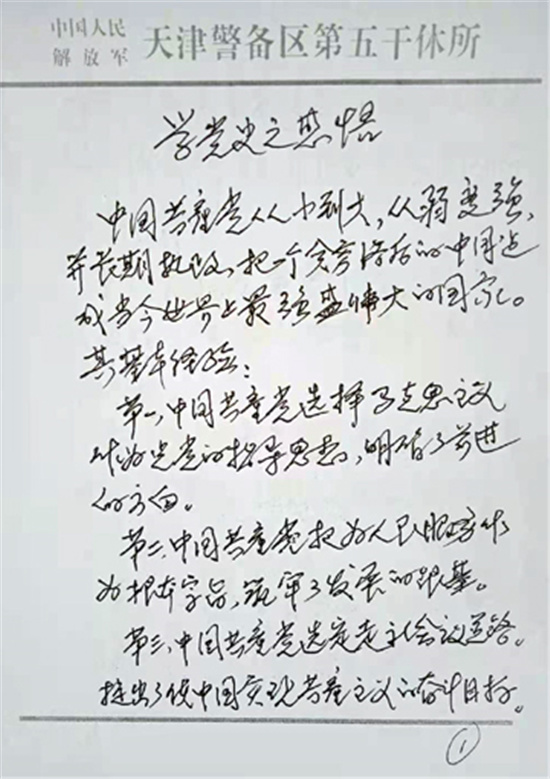 中国人民
解放军 天津警备区第五干休所
学党史之感悟
中国共产党从小到大,从弱变强,
并长期执政,把一个贫穷落后的中国建
成当今世界上最强盛伟大的国家。
其基本经验:
第一、中国共产党选择马克思主义
作为党的指导思想,明确了前进
的方向。
第二、中国共产党把为人民服务作
为根本宗旨,筑牢了发展的根基。
第三、中国共产党选定走社会主义道路。
提出了使中国实现共产主义的奋斗目标。
1